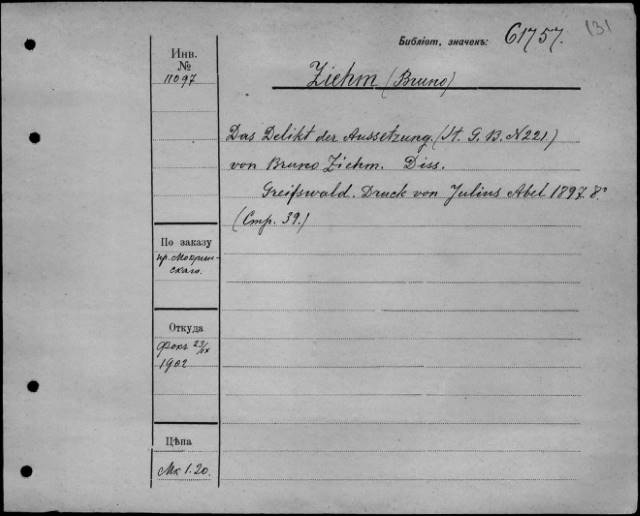 131
Библіот. значекъ: 61757.
Инв.
№
11097
Ziehm (Bruno)
Das Delikt der Aussetzung. (St. G. B. N 221)
von Bruno Ziehm. Diss.
Greifswald. Druck von Julius Abel 1897. 8°
(Стр. 39.)
По заказу
пр. Мокрин-
скаго.
Откуда
Фокъ 23/IX
1902
Цѣна
Мк 1.20.